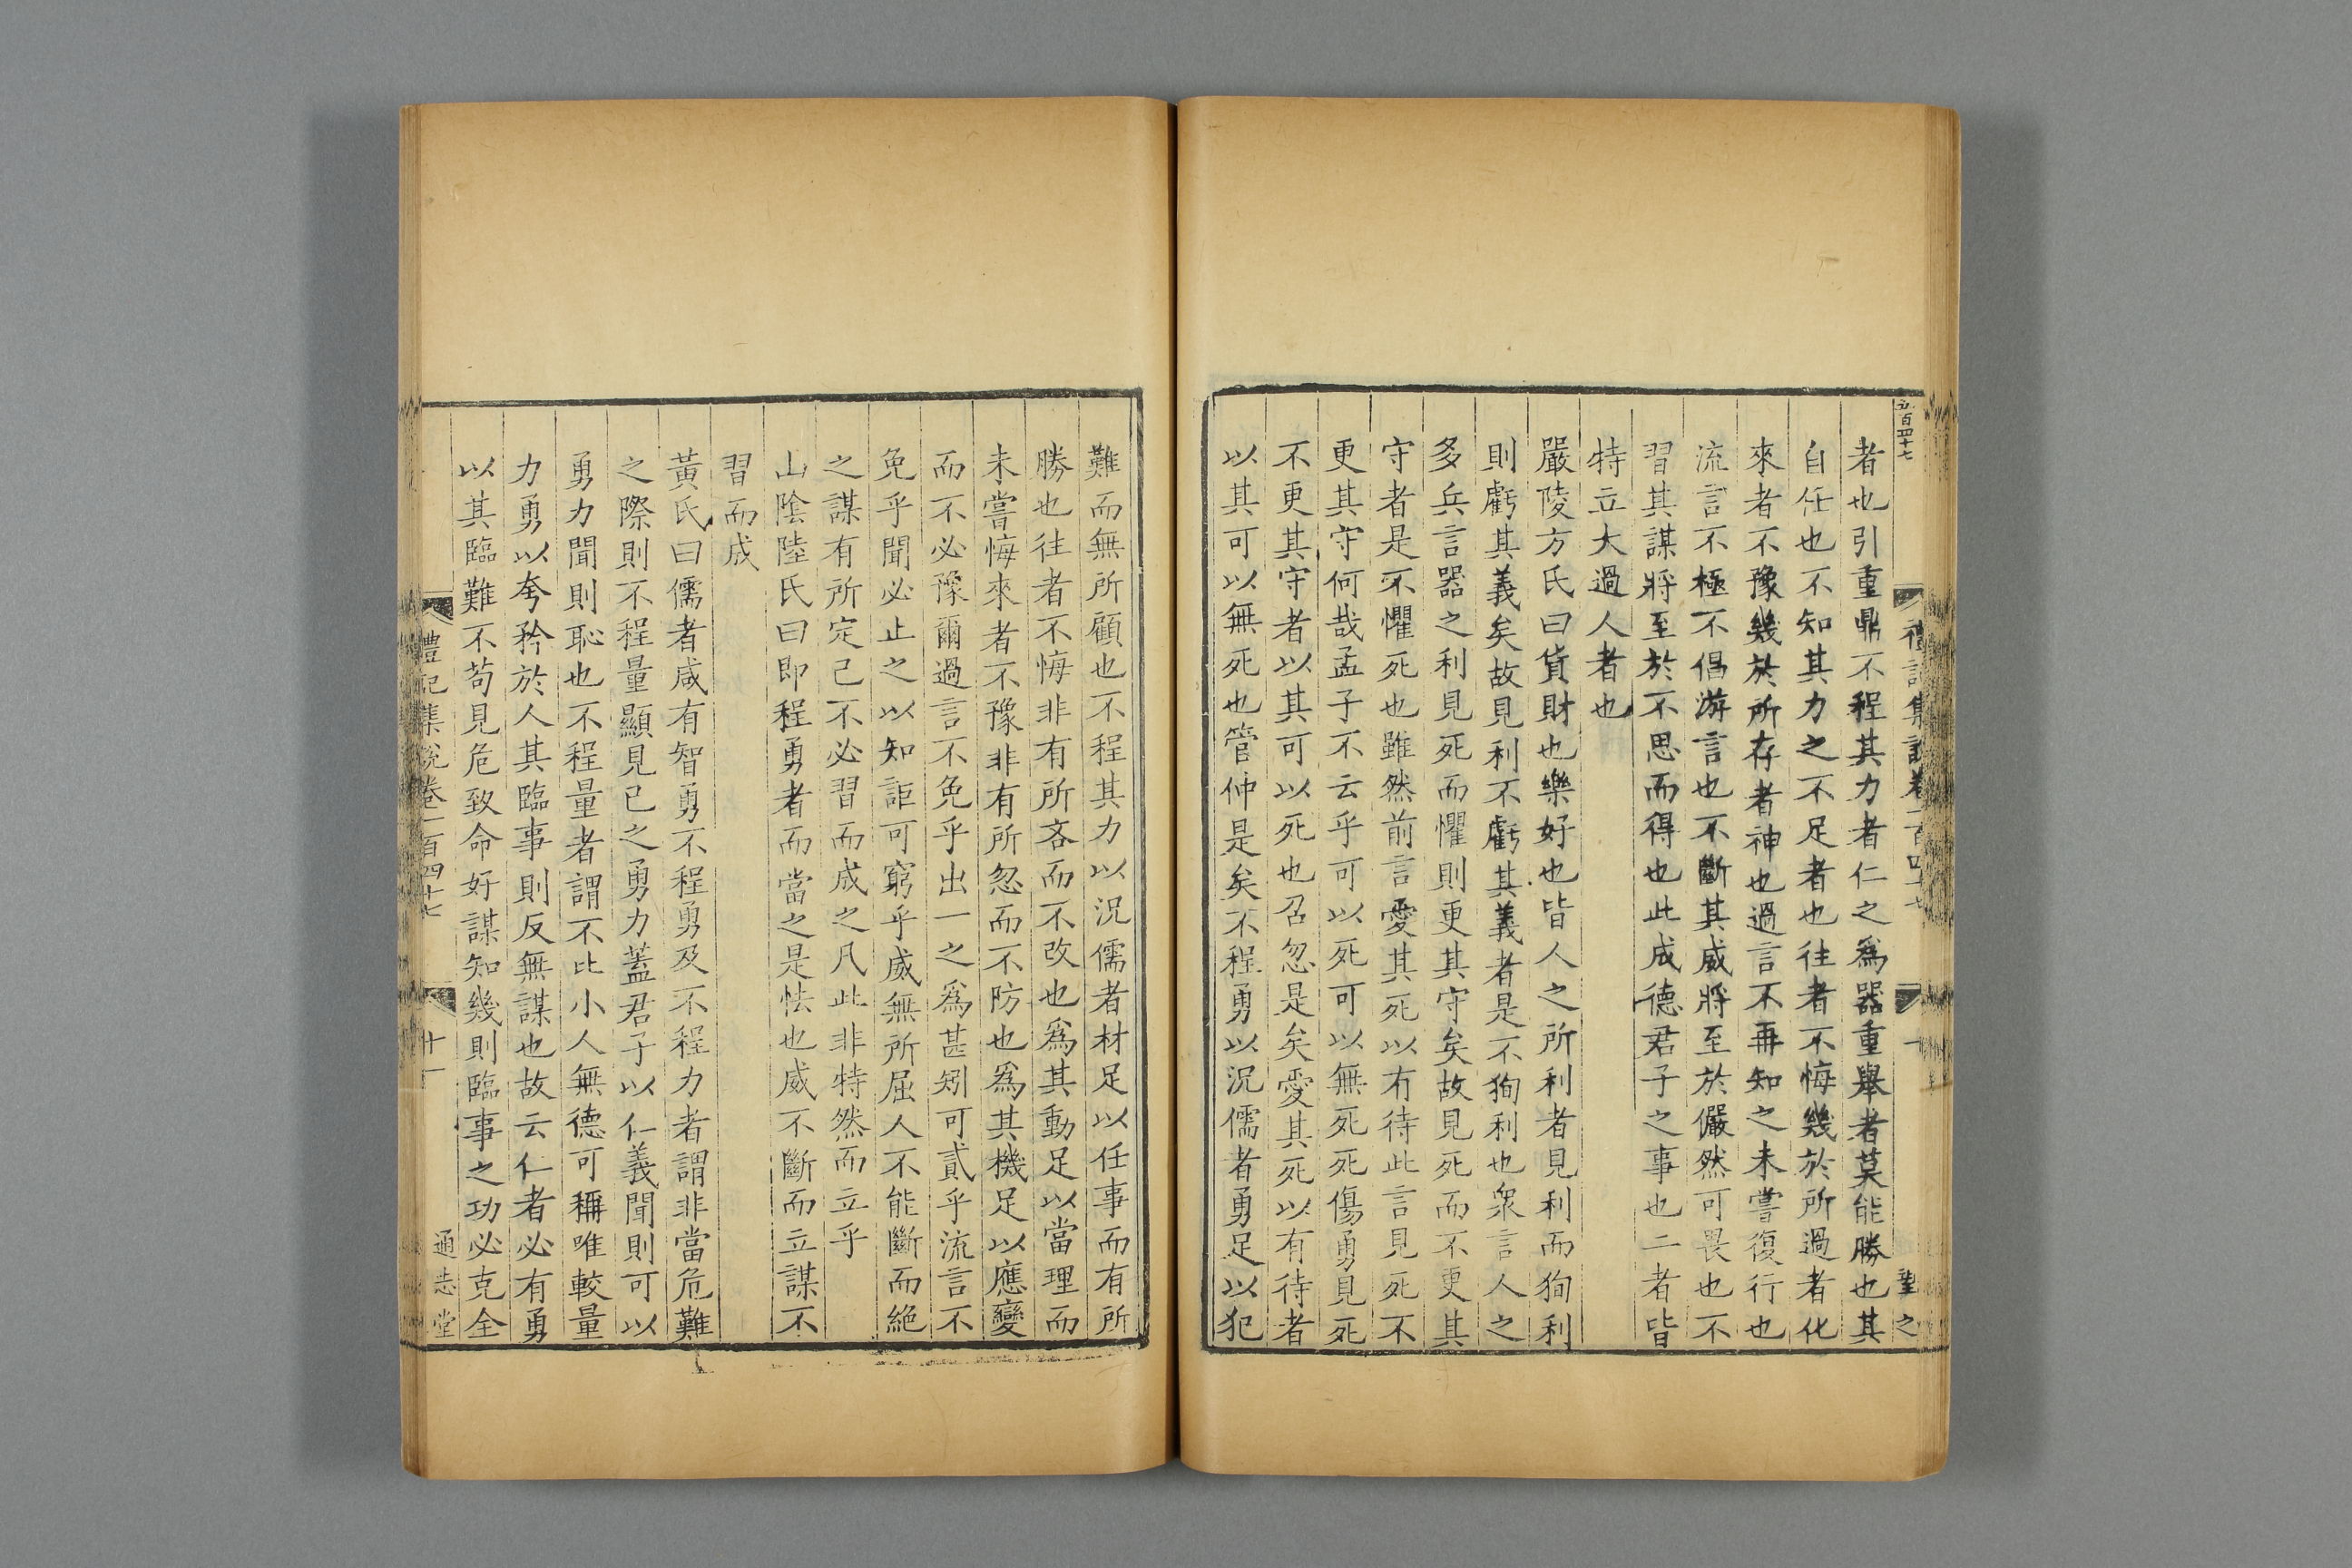 者也引重鼎不程其力者仁之爲器重舉者莫能勝也其
自任也不知其力之不足者也往者不悔幾於所過者化
來者不豫幾於所存者神也過言不再知之未嘗復行也
流言不極不倡游言也不斷其威將至於儼然可畏也不
習其謀將至於不思而得也此成德君子之事也二者皆
特立大過人者也
嚴陵方氏曰貨財也樂好也皆人之所利者見利而狥利
則虧其義矣故見利不虧其義者是不狥利也衆言人之
多兵言器之利見死而懼則更其守矣故見死而不更其
守者是不懼死也雖然前言愛其死以有待此言見死不
更其守何哉孟子不云乎可以死可以無死死傷勇見死
不更其守者以其可以死也召忽是矣愛其死以有待者
以其可以無死也管仲是矣不程勇以況儒者勇足以犯
難而無所顧也不程其力以況儒者材足以任事而有所
勝也往者不悔非有所吝而不改也爲其動足以當理而
未嘗悔來者不豫非有所忽而不防也爲其機足以應變
而不必豫爾過言不免乎出一之爲甚矧可貳乎流言不
免乎聞必止之以知詎可窮乎威無所屈人不能斷而絕
之謀有所定己不必習而成之凡此非特然而立乎
山陰陸氏曰即程勇者而當之是怯也威不斷而立謀不
習而成
黃氏曰儒者咸有智勇不程勇及不程力者謂非當危難
之際則不程量顯見已之勇力蓋君子以仁義聞則可以
勇力聞則恥也不程量者謂不比小人無德可稱唯較量
力勇以夸矜於人其臨事則反無謀也故云仁者必有勇
以其臨難不苟見危致命好謀知幾則臨事之功必克全
禮記集說卷一百四十七
十一
通志堂